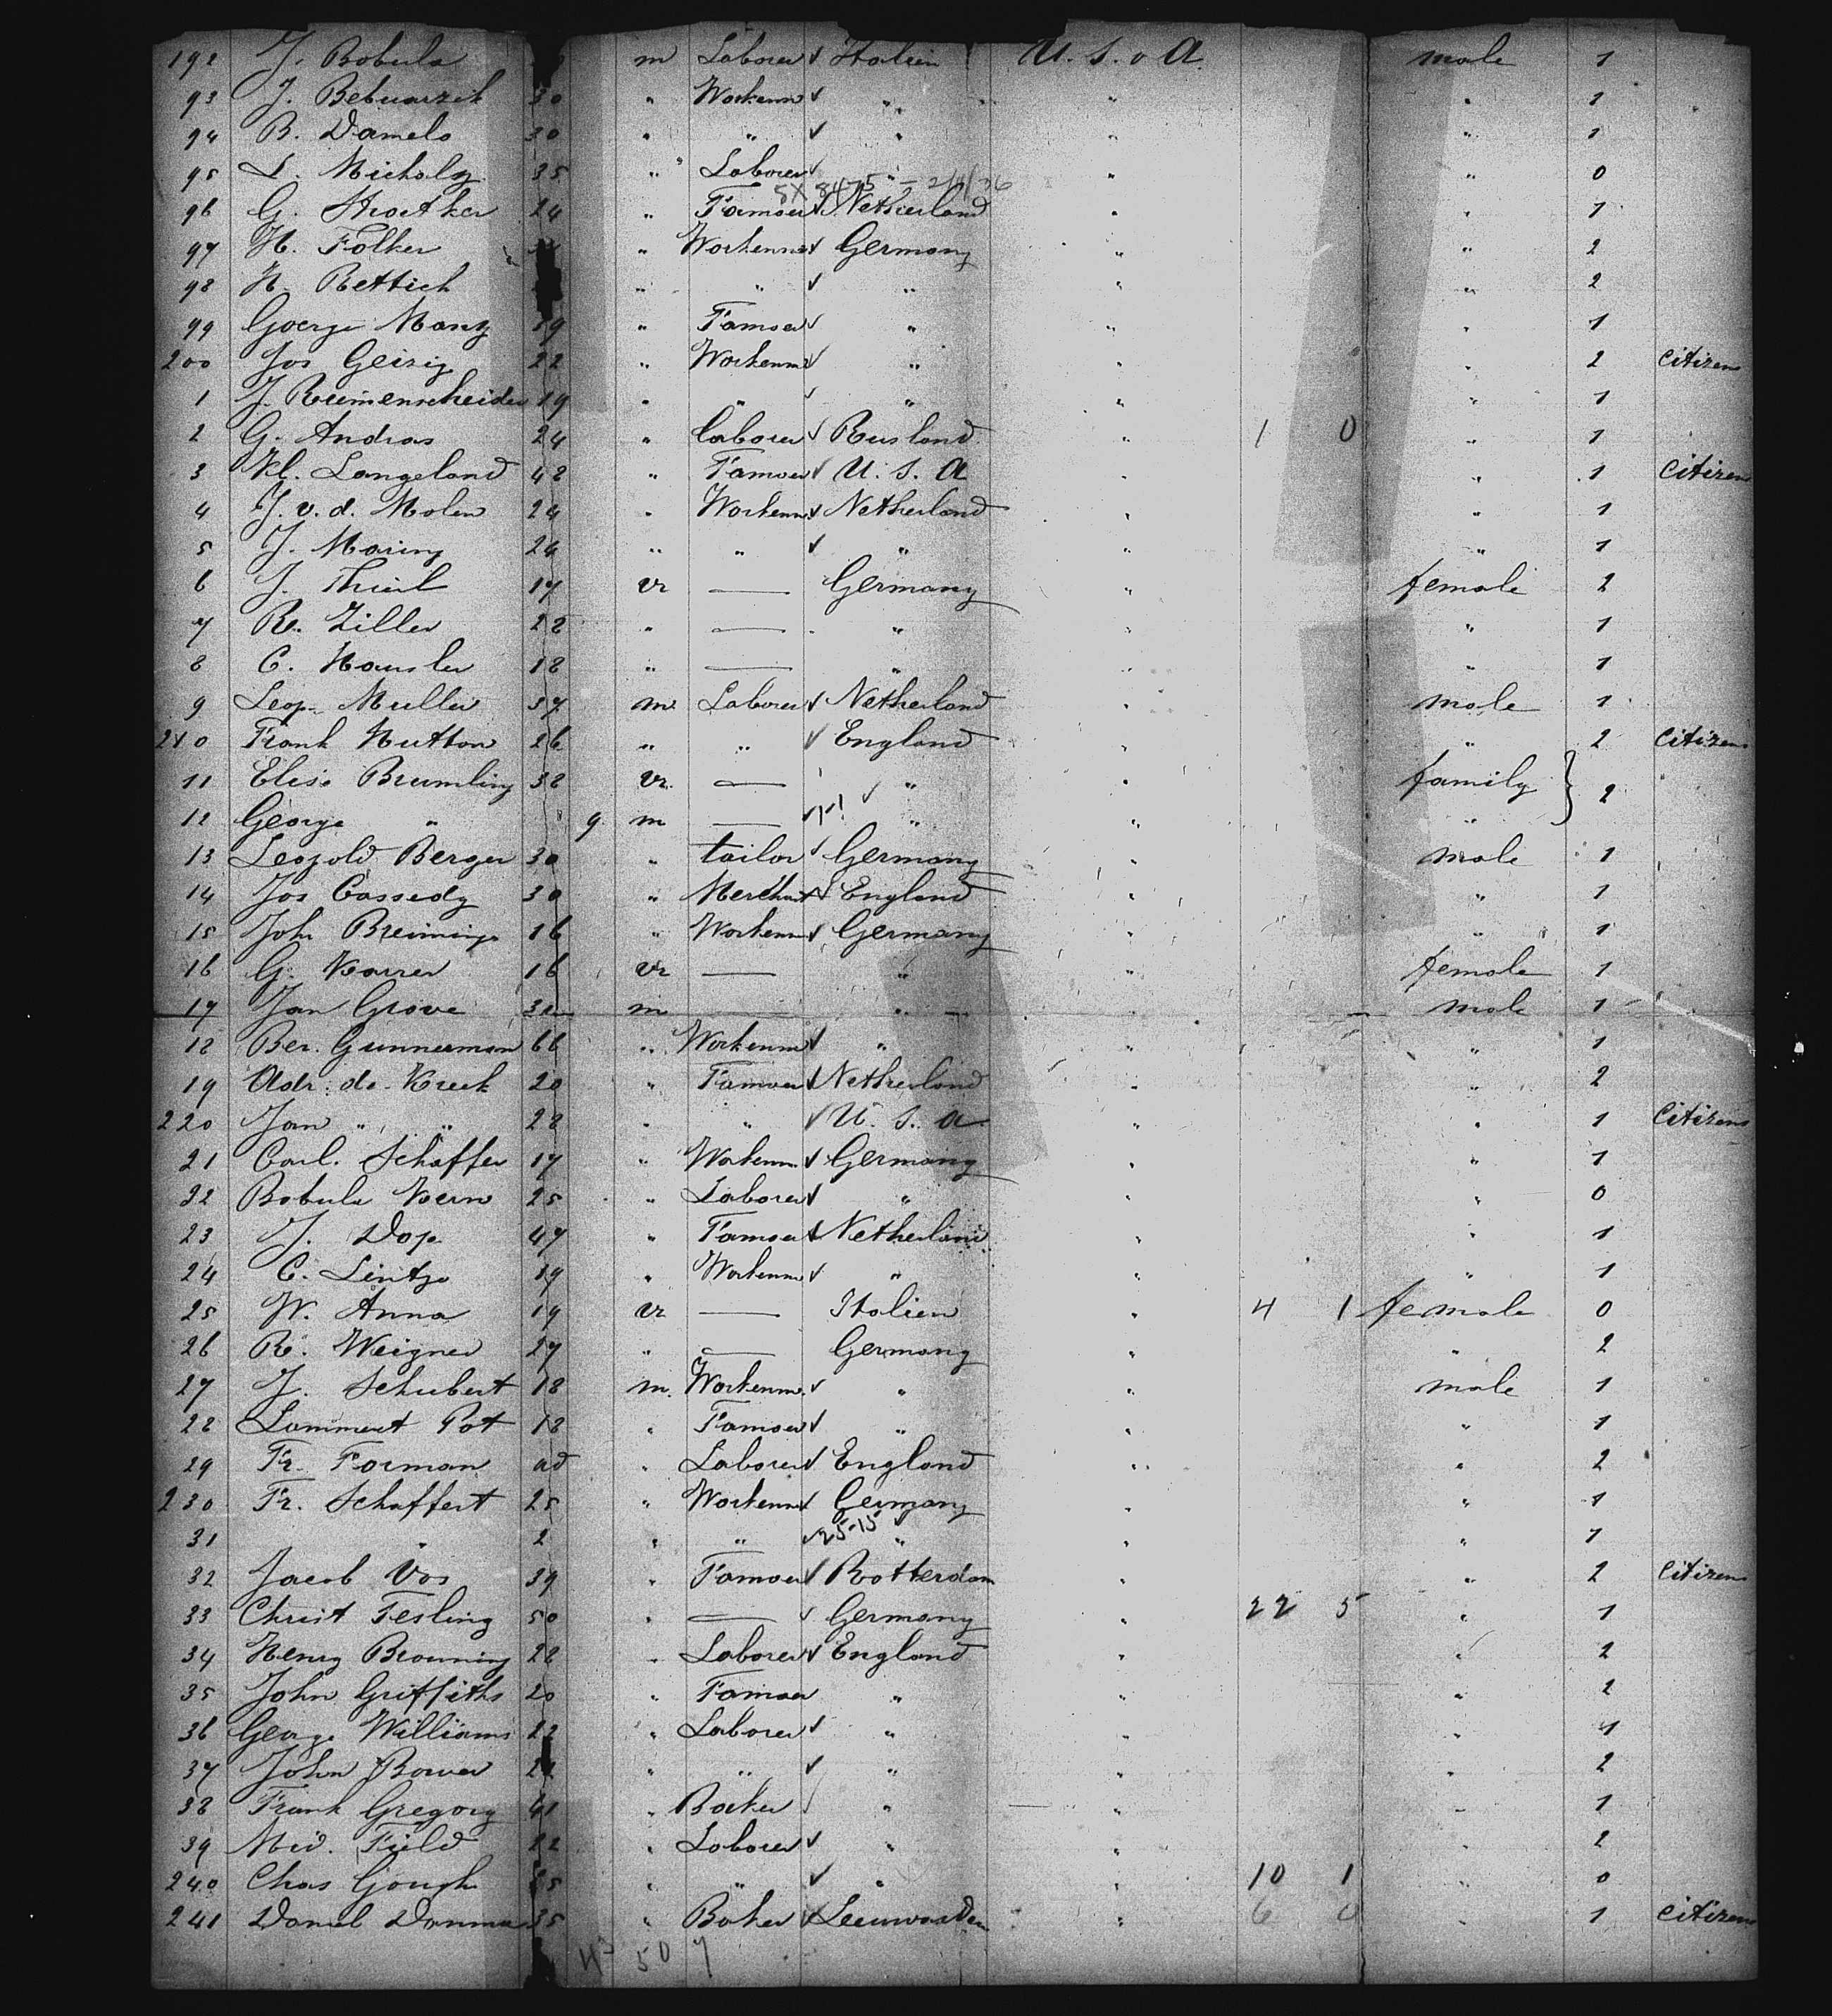 192 J. Bobula m Laborer ✓ Italien U. S. v A male 1
93 J. Bebuarzik 30 " Workenm ✓ " " " 1
94 B. Damelo 30 " " ✓ " " " 1
95 L. Micholsz 35 " Laborer ✓ " " " 0
5X 8475 - 2/4/36
96 G. Stroetker 24 " Famoer ✓ Netherland " " 1
97 H. Folker " Workenm ✓ Germany " " 2
98 H. Rettich " " ✓ " " " 2
99 Goerge Manz 19 " Famoer ✓ " " " 1
200 Jos Geisig 22 " Workenm ✓ " " " 2 Citizen
1 J. Riemenscheider 19 " " ✓ " " " 1
2 G. Andras 24 " Laborer ✓ Rusland " 1 0 " 1
3 Kl. Langeland 48 " Famoer ✓ U. S. A " " 1 Citizen
4 J. v. d. Molen 24 " Workenm ✓ Netherland " " 1
5 J. Maring 24 " " ✓ " " " 1
6 J. Thiel 17 vr — Germany " female 2
7 R. Ziller 28 " — " " " 1
8 C. Hausler 18 " — " " " 1
9 Leop. Muller 37 m Laborer ✓ Netherland " male 1
210 Frank Hutton 26 " " ✓ England " " 2 Citizen
11 Elise Brumling 38 vr — ✓ " " family } 2
12 George " 9 m — ✓ " " "
13 Leopold Berger 30 " tailor ✓ Germany " male 1
14 Jos Cassedy 30 " Merchant ✓ England " " 1
15 Joh Breining 16 " Workenm ✓ Germany " " 1
16 G. Karrer 16 vr — " " female 1
17 Jan Grove m " " male 1
18 Ber. Gunnerman 66 " Workenm ✓ " " " 1
19 Adr. de Kreek 20 " Famoer ✓ Netherland " " 2
220 Jan " " 28 " " ✓ U. S. A " " 1 Citizen
21 Carl Schäffer 17 " Workenm ✓ Germany " " 1
22 Bobula Kern 25 " Laborer ✓ " " " 0
23 J. Dop 47 " Famoer ✓ Netherland " " 1
24 C. Lintzo 19 " Workenm ✓ " " " 1
25 W. Anna 19 vr — Italien " 4 1 female 0
26 R. Weigner 27 " — Germany " " 2
27 J. Schubert 18 m. Workenm. ✓ " " male 1
28 Lammert Pot 18 " Famoer ✓ " " " 1
29 Fr. Forman ad " Laborer ✓ England " " 2
230 Fr. Schaffert 25 " Workenm ✓ Germany " " 1
31 " 2 " " ✓ 25-15 " " " 1
32 Jacob Vos 39 " Famoer ✓ Rotterdam " " 2 Citizen
33 Christ Fesling 50 " — ✓ Germany " 22 5 " 1
34 Henry Browning 28 " Laborer ✓ England " " 2
35 John Griffiths 20 " Famoer " " " 2
36 George Williams 22 " Laborer ✓ " " " 1
37 John Bower " " ✓ " " " 2
38 Frank Gregory 41 " Backer ✓ " " " 1
39 Mid. Field 22 " Laborer ✓ " " " 2
240 Chas Gough " " ✓ " " 10 1 " 0
241 Daniel 35 " Baker ✓ Leeuwarden " 6 0 " 1 Citizen
43 50 7